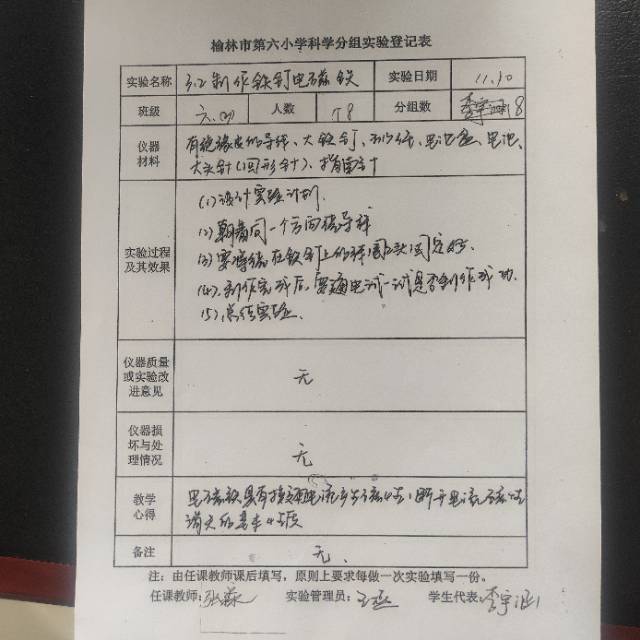 榆林市第六小学科学分组实验登记表
实验名称 3.2制作铁钉电磁铁 实验日期 11.10
班级 六.四 人数 58 分组数 8
仪器材料 有绝缘皮的导线、大铁钉、电池盒、电池、
大头针(回形针)、指南针
实验过程及其效果
(1)设计实验计划.
(2)朝着同一个方向绕导线
(3)要将绕在铁钉上的固定好.
(4)制作完成后,要通电试一试是否制作成功.
(5)总结实验.
仪器质量或实验改进意见 无
仪器损坏与处理情况 无
教学心得 电磁铁具有接通电流产生磁性,断开电流磁性
消失的基本性质
备注 无.
注:由任课教师课后填写,原则上要求每做一次实验填写一份。
任课教师: 实验管理员: 学生代表:李宇